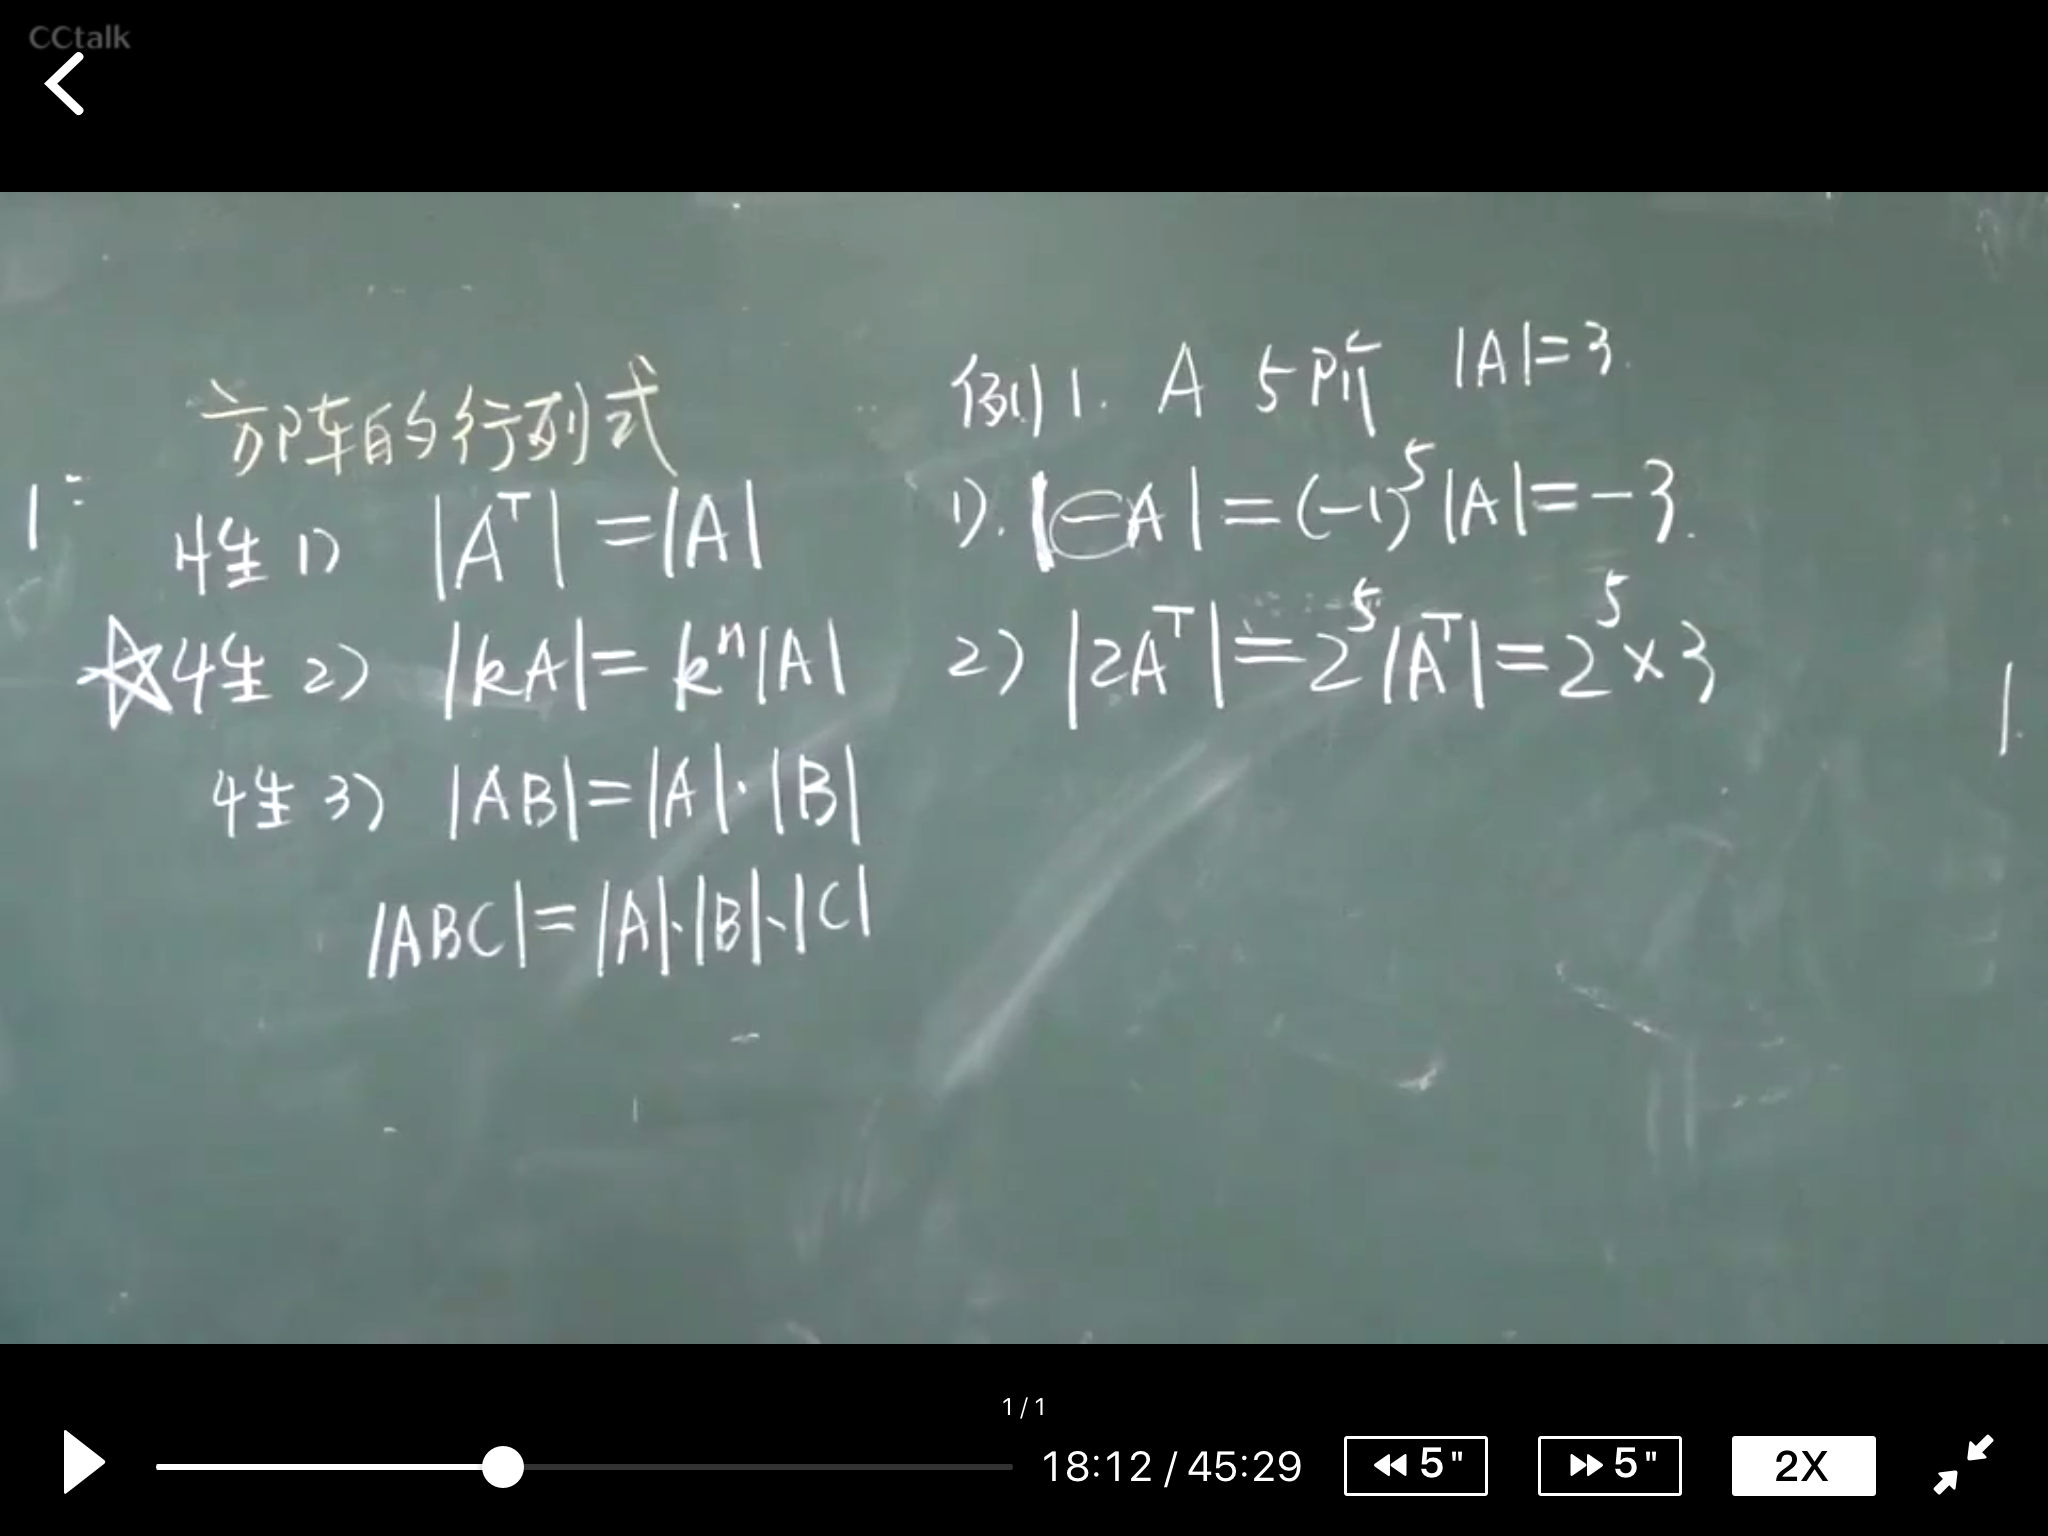 CCtalk
方阵的行列式
性1) |Aᵀ| = |A|
☆性2) |kA| = kⁿ|A|
性3) |AB| = |A|·|B|
|ABC| = |A|·|B|·|C|
例1. A 5阶 |A|=3.
1). |-A| = (-1)⁵|A| = -3.
2) |2Aᵀ| = 2⁵|Aᵀ| = 2⁵×3
1/1
18:12 / 45:29
5"
5"
2X